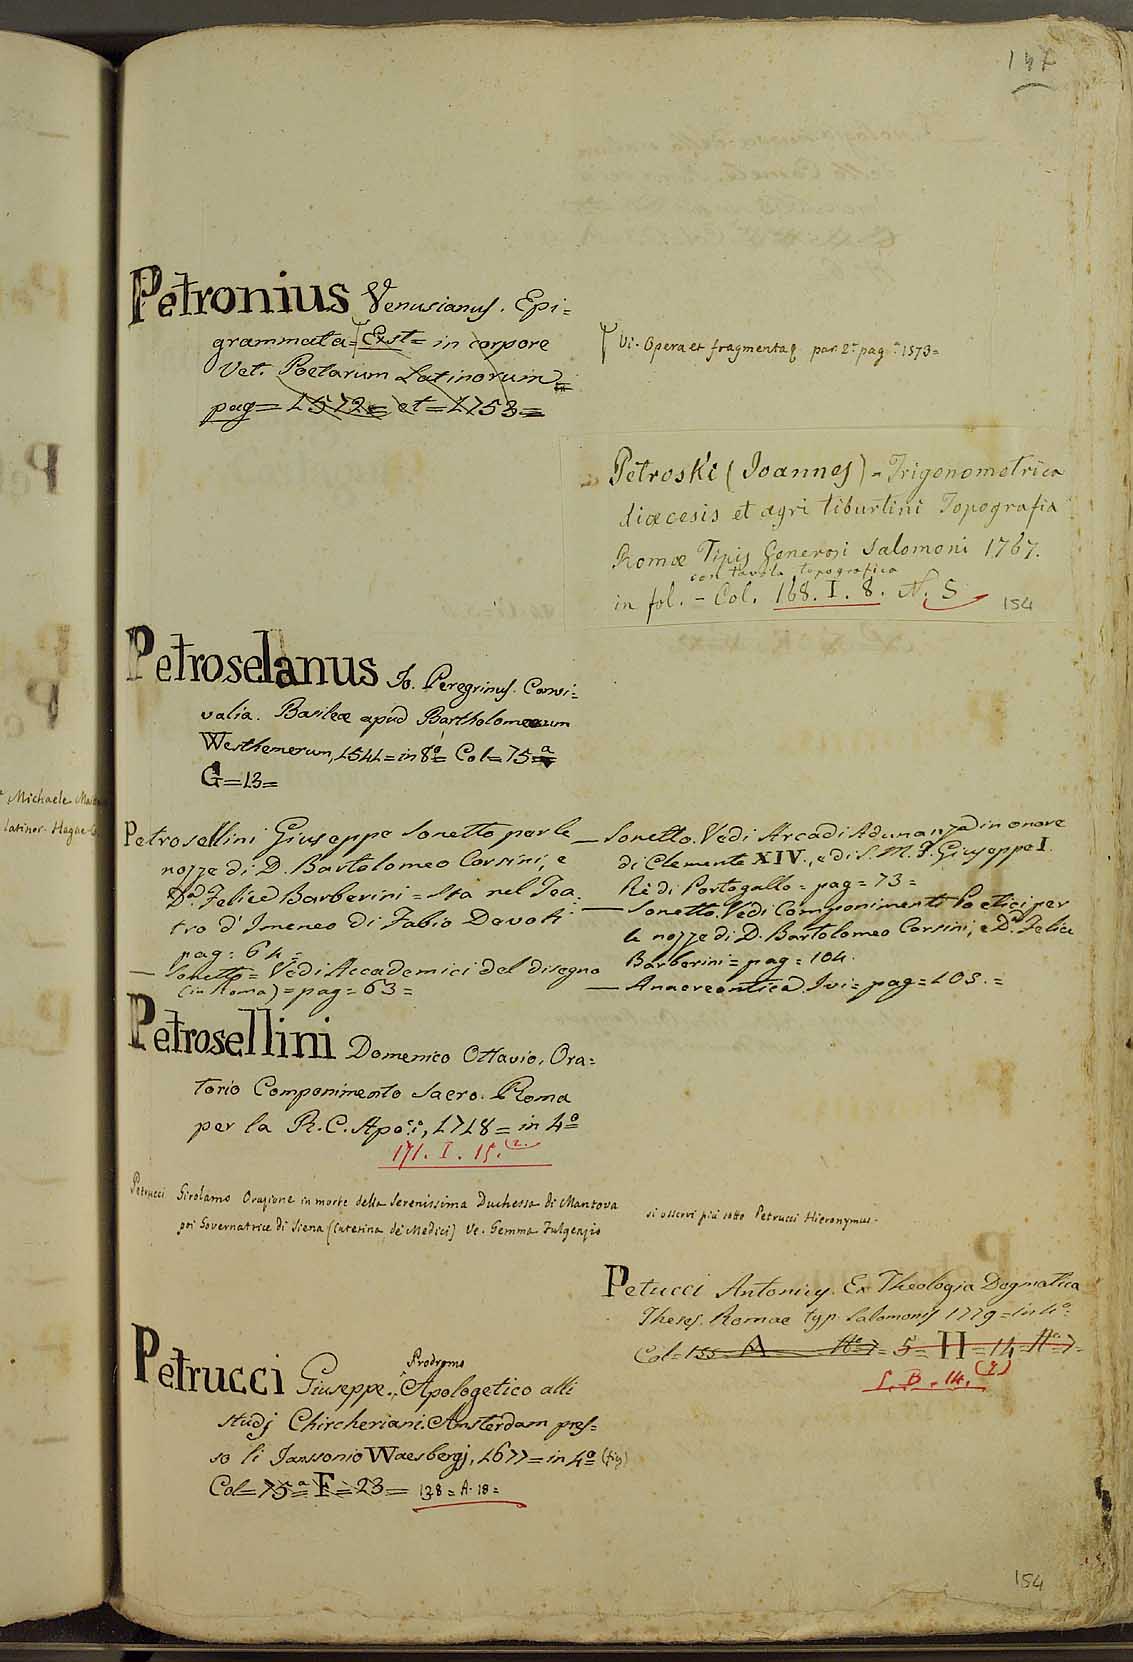 147
Petronius Venusianus. Epi=
grammata= Exst= in corpore
Vet. Poetarum Latinorum=
pag= 1572= et= 1753=
Vi. Opera et fragmenta par. 2.ª pag. 1573=
Petroski (Joannes) - Trigonometrica
diœcesis et agri tiburtini Topografia
Romæ Tipis Generosi Salomoni 1767.
con tavola topografica
in fol. - Col. 168. I. 8. N. 5
154
Petroselanus Io. Peregrinus. Convi=
valia. Basileæ apud Bartholomæum
Westhemerum, 1541= in 8º= Col= 75=ª
G=13=
t Michaele
latiner. Hagae
Petrosellini Giuseppe Sonetto per le
nozze di D. Bartolomeo Corsini, e
D.ª Felice Barberini= Sta nel Tea=
tro d'Imeneo di Fabio Davoti
pag= 64=
— Sonetto= Vedi Accademici del disegno
(in Roma)= pag= 63=
— Sonetto. Vedi Arcadi Adunanza in onore
di Clemente XIV., e di S. M. F. Giuseppe I.
Rè di Portogallo= pag= 73=
— Sonetto. Vedi Componimenti Poetici per
le nozze di D. Bartolomeo Corsini, e D.ª Felice
Barberini= pag= 104.
— Anacreontica. Ivi= pag= 105.=
Petrosellini Domenico Ottavio, Ora=
torio Componimento Sacro. Roma
per la R. C. Apo.i, 1718= in 4º=
171. I. 15. (2.
Petrucci Girolamo Orazione in morte della Serenissima Duchessa di Mantova
poi Governatrice di Siena (Caterina de' Medici) Ve. Gemma Fulgenzio
si osservi più sotto Petrucci Hieronymus.
Petucci Antonius. Ex Theologia Dogmatica
Theses. Romae typ. Salomonis 1779= in 4º=
Col= 155= A= Nº 7= 5= H= 14 Nº 7=
5. B. 14. (2)
Prodromo
Petrucci Giuseppe., Apologetico alli
studj Chircheriani. Amsterdam pres=
so li Janssonio Waesbergj, 1677= in 4º= (fig)
Col= 75ª= F= 23= 138= A. 18=
154